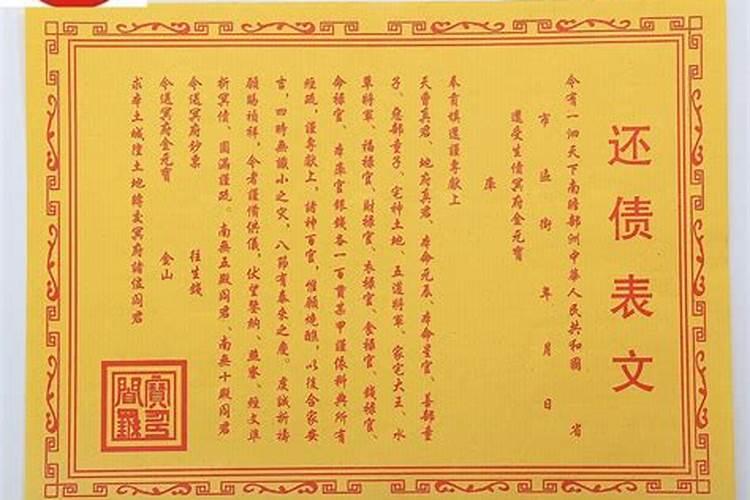 还债表文
今有一泗天下南瞻部洲中華人民共和國 省
市 區 街 年 月 日
還受生債冥府金元寶
庫
奉貢填還謹專獻上
天曹真君、地府真君、本命元辰、本命星官、善部童
子、惡部童子、宅神土地、五道將軍、家宅大王、水
草將軍、福祿官、財祿官、衣祿官、食祿官、錢祿官、
命祿官、本庫官銀錢各一百貫某甲謹依科典所有
經疏，謹專献上，諸神百官，惟願燒醮，以後合家安
吉，四時無讖小之灾，八節有泰來之慶。虔誠祈禱
願賜禎祥，令者謹備供儀，伏望鑒納、燕寥、經文準
折冥債、圆滿謹疏。南無五殿阎君、南無十殿阎君
今送冥府鈔票 往生錢
今送冥府金元寶 金山
求本土城隍土地轉交冥府諸位阎君